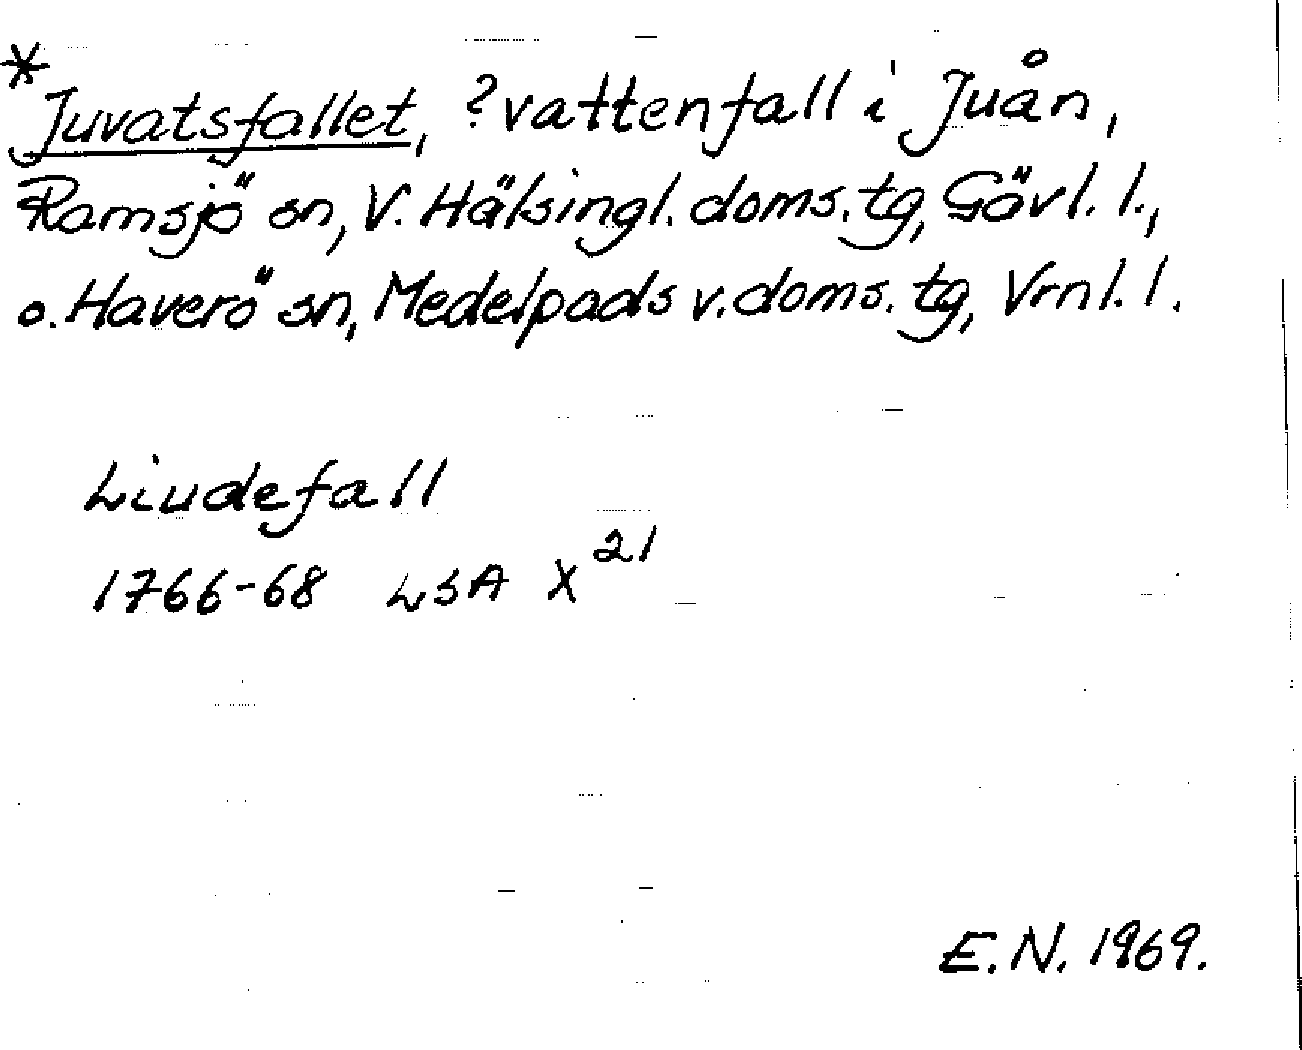 *Juvatsfallet, ?vattenfall i Juån,
Ramsjö sn, V. Hälsingl. doms. tg, Gävl. l.,
o. Haverö sn, Medelpads v. doms. tg, Vrnl. l.
Liudefall
1766-68 LSA X 21
E.N. 1969.